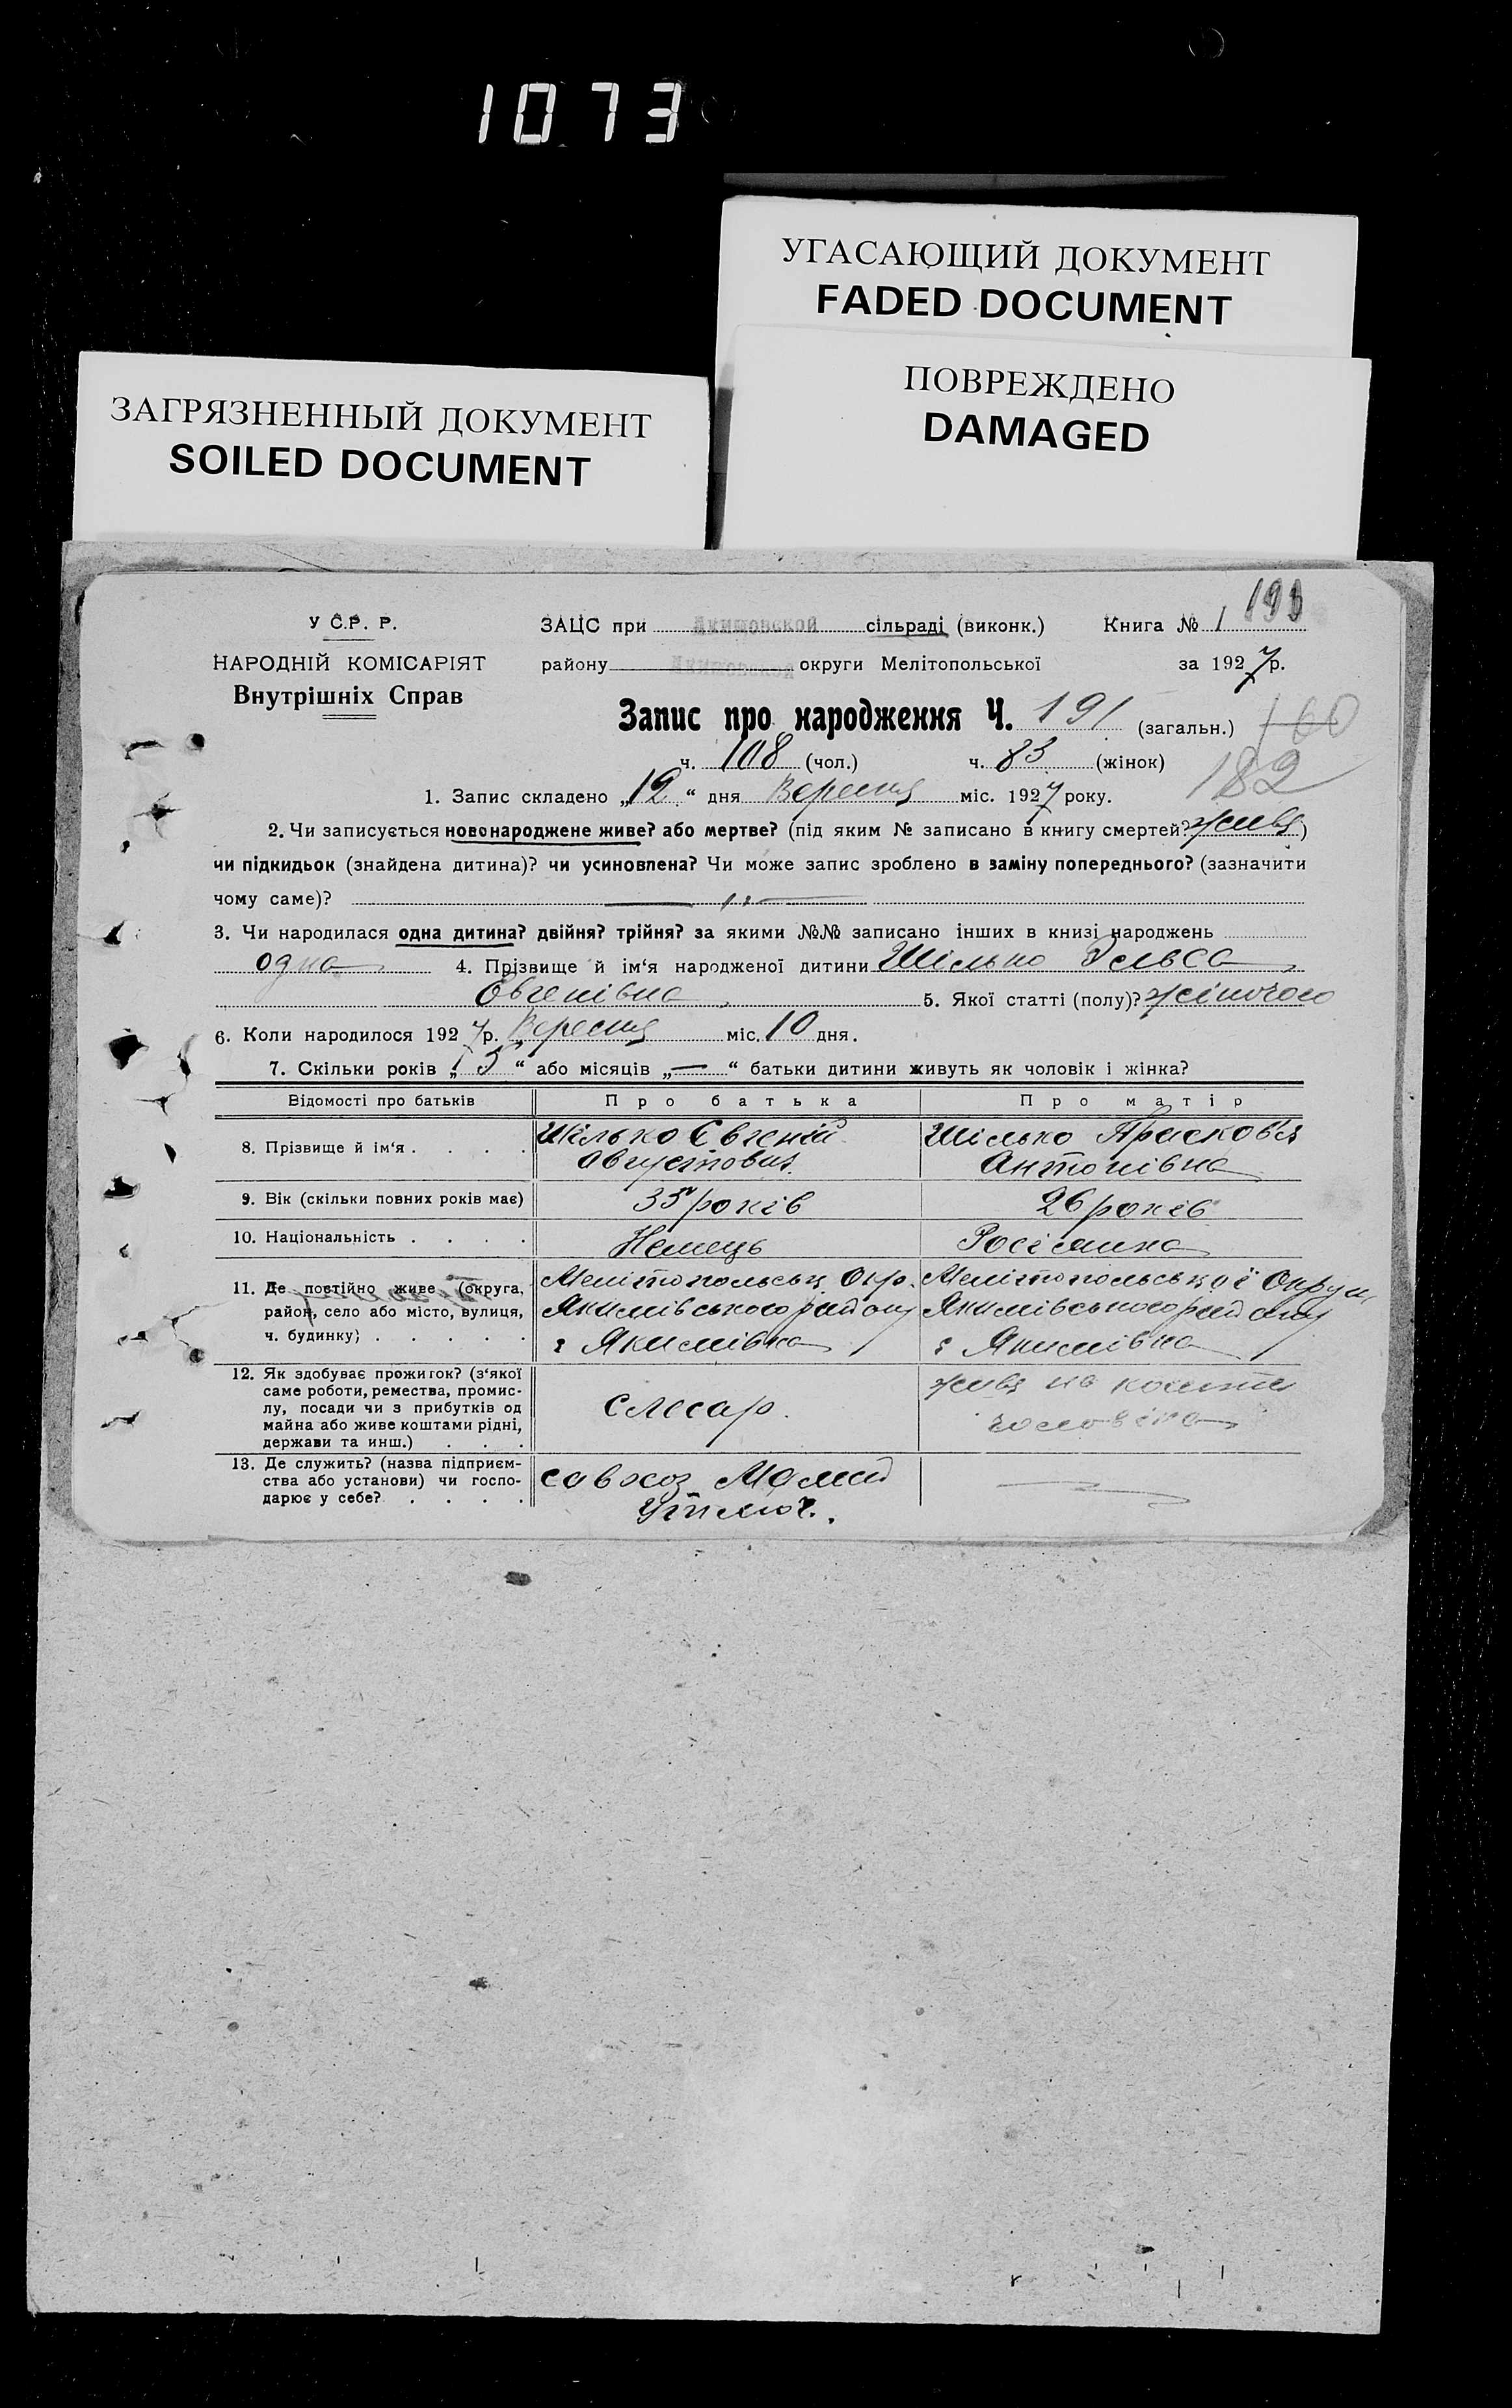 1073
УГАСАЮЩИЙ ДОКУМЕНТ
FADED DOCUMENT
ПОВРЕЖДЕНО
DAMAGED
ЗАГРЯЗНЕННЫЙ ДОКУМЕНТ
SOILED DOCUMENT
193
У С.Р. Р.
НАРОДНІЙ КОМІСАРІЯТ
Внутрішніх Справ
ЗАЦС при Якимовской сільраді (виконк.) Книга № 1
району Якимовской округи Мелітопольської за 1927 р.
Запис про народження Ч. 191 (загальн.) 160
ч. 108 (чол.) ч. 83 (жінок) 182
1. Запис складено „12" дня Вересня міс. 1927 року.
2. Чи записується новонароджене живе? або мертве? (під яким № записано в книгу смертей? живе)
чи підкидьок (знайдена дитина)? чи усиновлена? Чи може запис зроблено в заміну попереднього? (зазначити
чому саме)?
3. Чи народилася одна дитина? двійня? трійня? за якими №№ записано інших в книзі народжень
одна 4. Прізвище й ім'я народженої дитини Шілько Ельса
Євгенівна 5. Якої статті (полу)? жіночого
6. Коли народилося 1927 р. „Вересня міс. 10 дня.
7. Скільки років „ “ або місяців „—“ батьки дитини живуть як чоловік і жінка?
Відомості про батьків Про батька Про матір
8. Прізвище й ім'я . . . . Шілько Євгеній Шілько Прасков'я
Августович Антонівна
9. Вік (скільки повних років має) 35 років 26 років
10. Національність . . . . Немець Росіянка
11. Де постійно живе (округа, Мелітопольськ. Окр. Мелітопольської Округи
район, село або місто, вулиця, Якимівського району Якимівського району
ч. будинку) . . . . . с Якимівка с Якимівка
12. Як здобуває прожиток? (з'якої
саме роботи, ремества, промис-
лу, посади чи з прибутків од
майна або живе коштами рідні,
держави та инш.) . . .
слесар.
живе на кошти
чоловіка
13. Де служить? (назва підприєм-
ства або установи) чи госпо-
дарює у себе? . . . .
совхоз Малий
Утлюг.